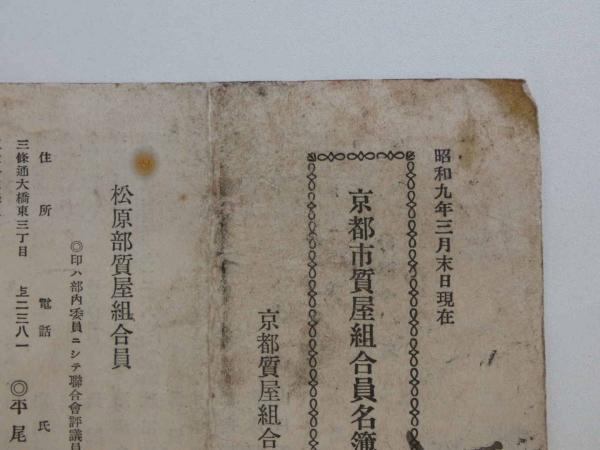 昭和九年三月末日現在
京都市質屋組合員名簿
京都質屋組合
松原部質屋組合員
◎印ハ部内委員ニシテ聯合會評議員
住所 電話 氏
三條通大橋東三丁目 上二三八一 ◎平尾